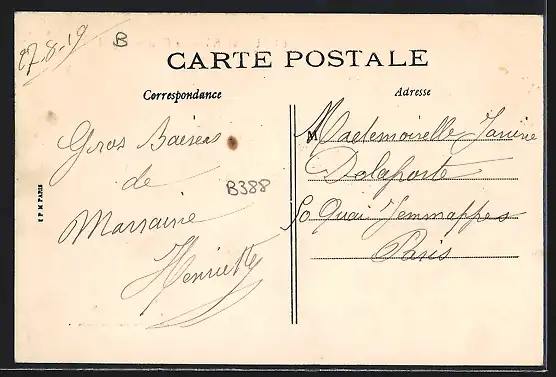 27-8-19
B
CARTE POSTALE
Correspondance
Adresse
Gros Baisers
de
B388
Marraine
Henriette
Mademoiselle Janine
Delaporte
50 Quai Jemmappes
Paris
E P M PARIS